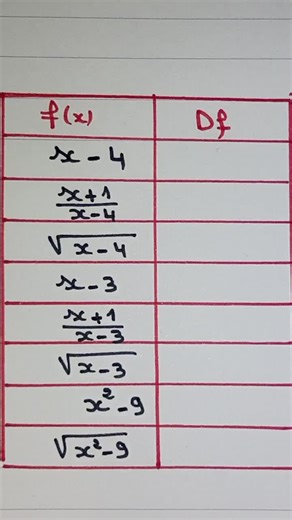 f(x) Df
x - 4
x+1/x-4
√x-4
x - 3
x+1/x-3
√x-3
x²-9
√x²-9